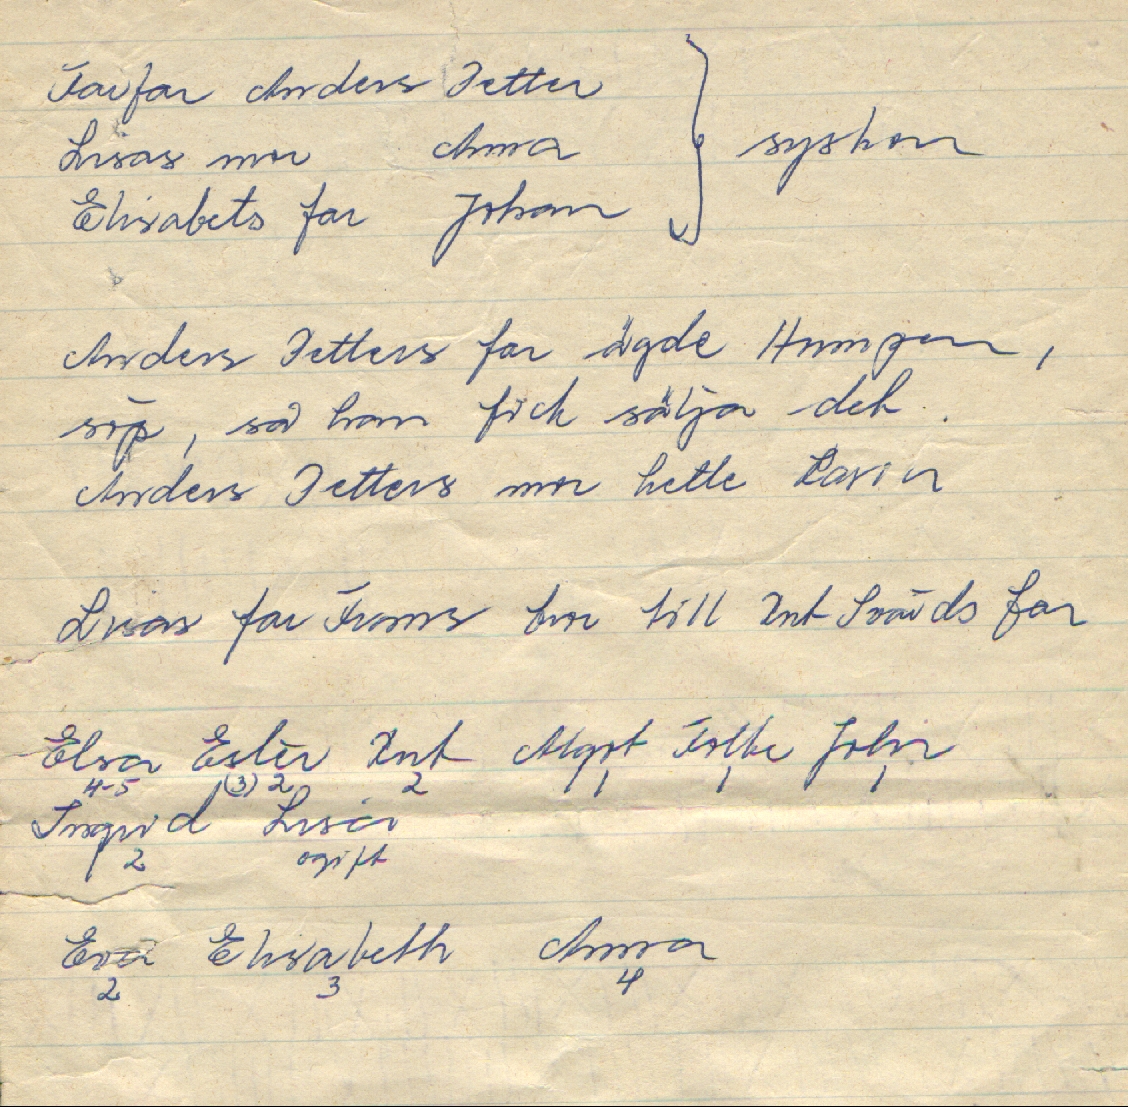 Farfar Anders Petter
Lisas mor Anna } syskon
Elisabets far Johan
Anders Petters far ägde Humpen,
söp, så han fick sälja det.
Anders Petters mor hette Karin
Lisas far Frans bror till Knt Svärds far
Elsa Ester Knt Mgt Folke John
4-5 (3) 2 2 1 1 1
Ingrid Lisa
2 ogift
Eva Elisabeth Anna
2 3 4